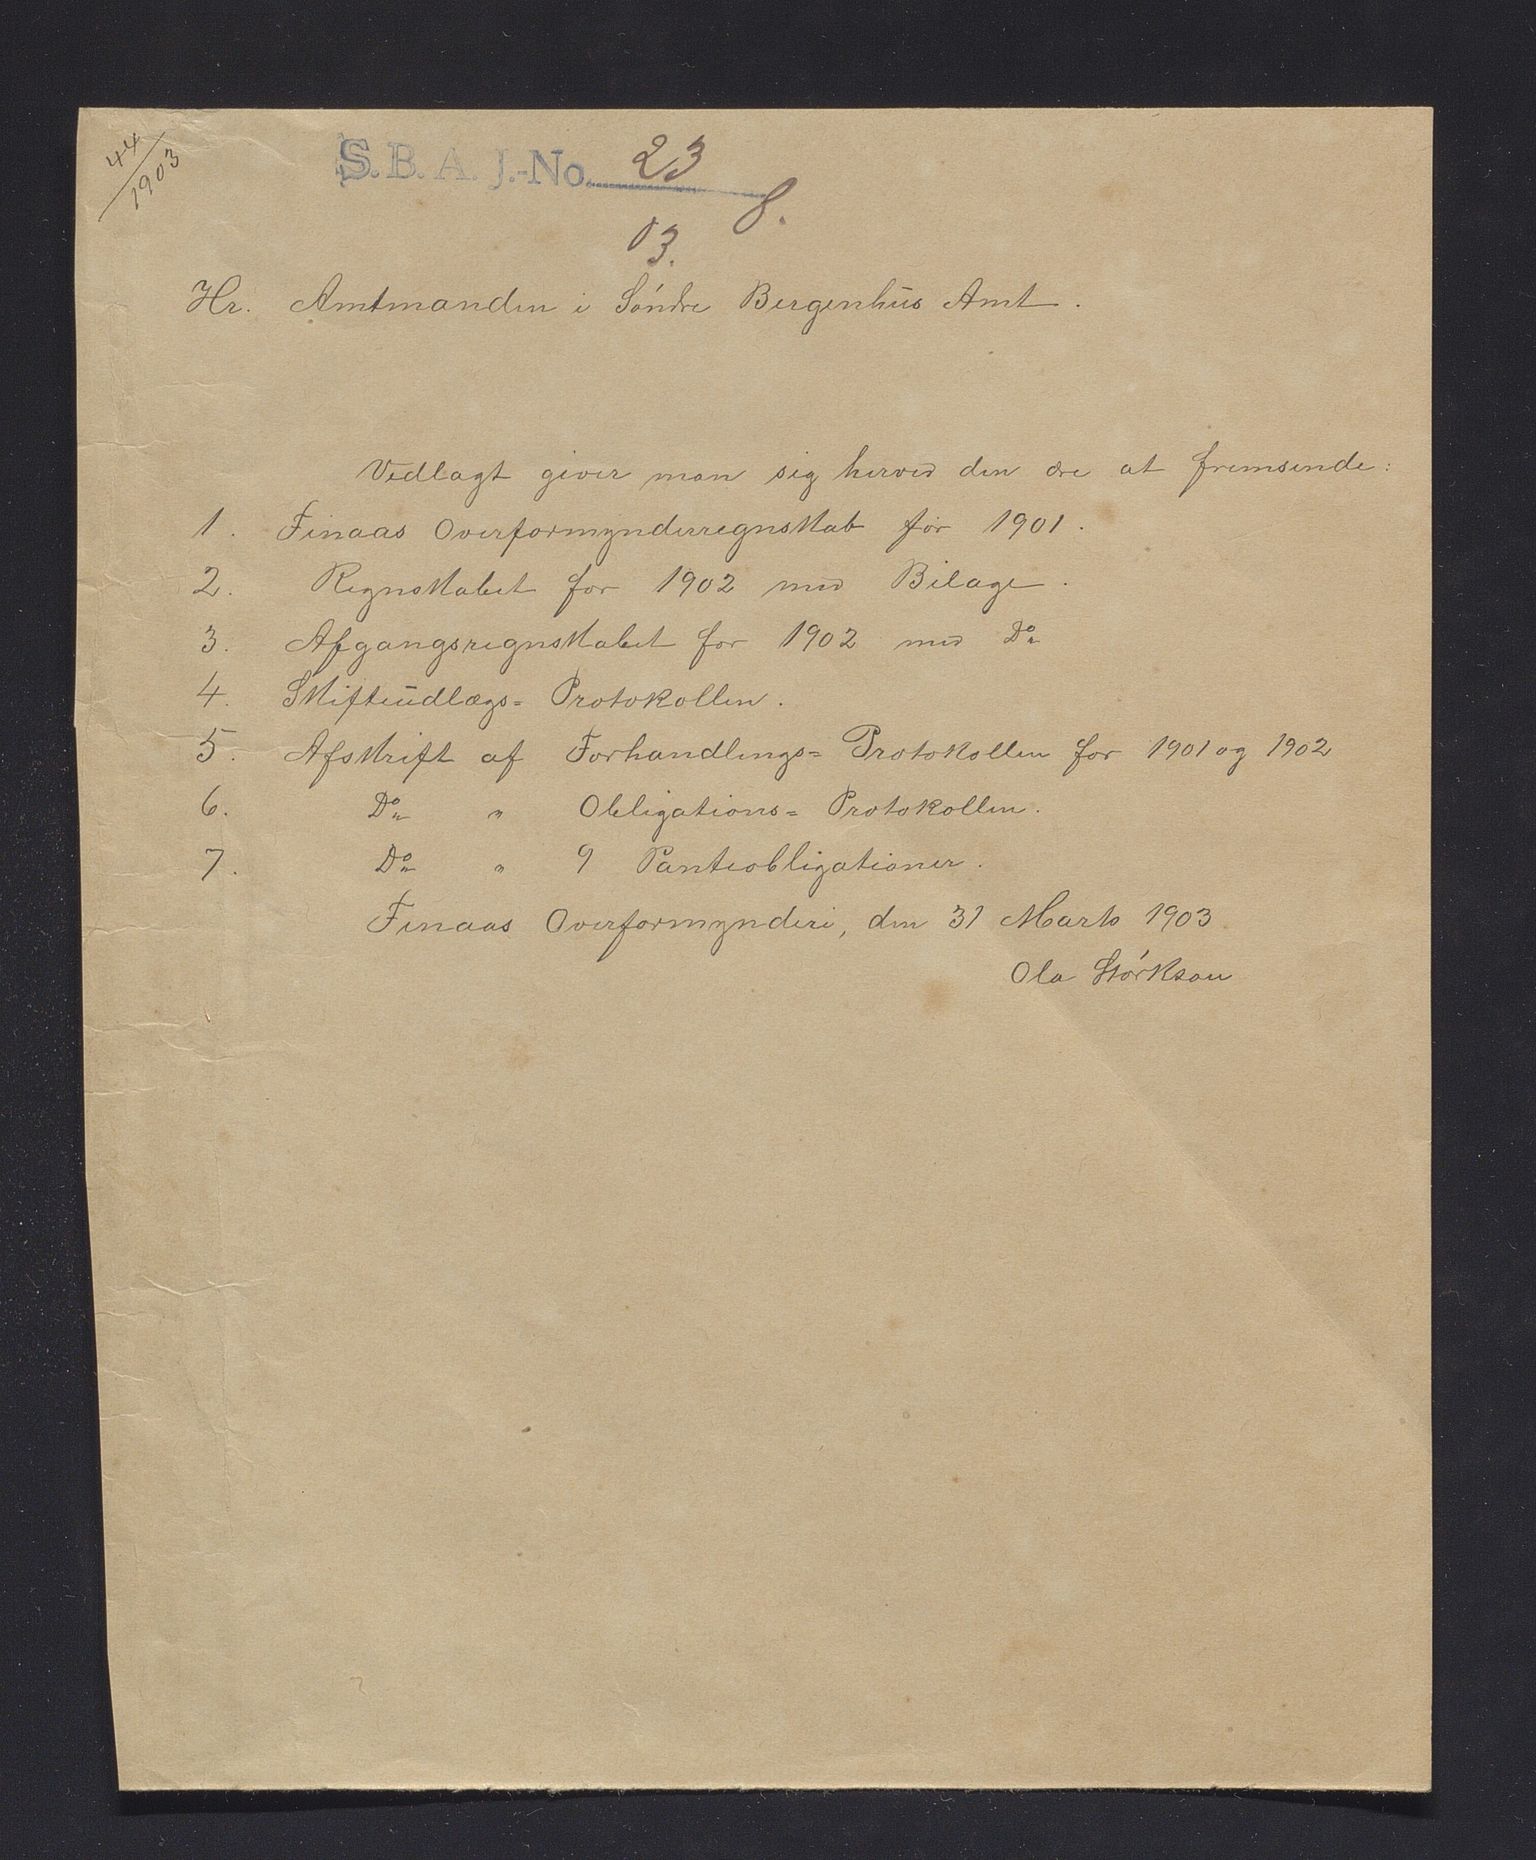 44/1903
S. B. A. J.-No. 23
8.
03.
Hr. Amtmanden i Søndre Bergenhus Amt.
Vedlagt giver man sig herved den ære at fremsende:
1. Finaas Overformynderregnskab for 1901.
2. Regnskabet for 1902 med Bilage.
3. Afgangsregnskabet for 1902 med Do
4. Skifteudlægs= Protokollen.
5. Afskrift af Forhandlings= Protokollen for 1901 og 1902
6. Do " Obligations= Protokollen.
7. Do " 9 Panteobligationer.
Finaas Overformynderi, den 31 Marts 1903
Ola Størkson